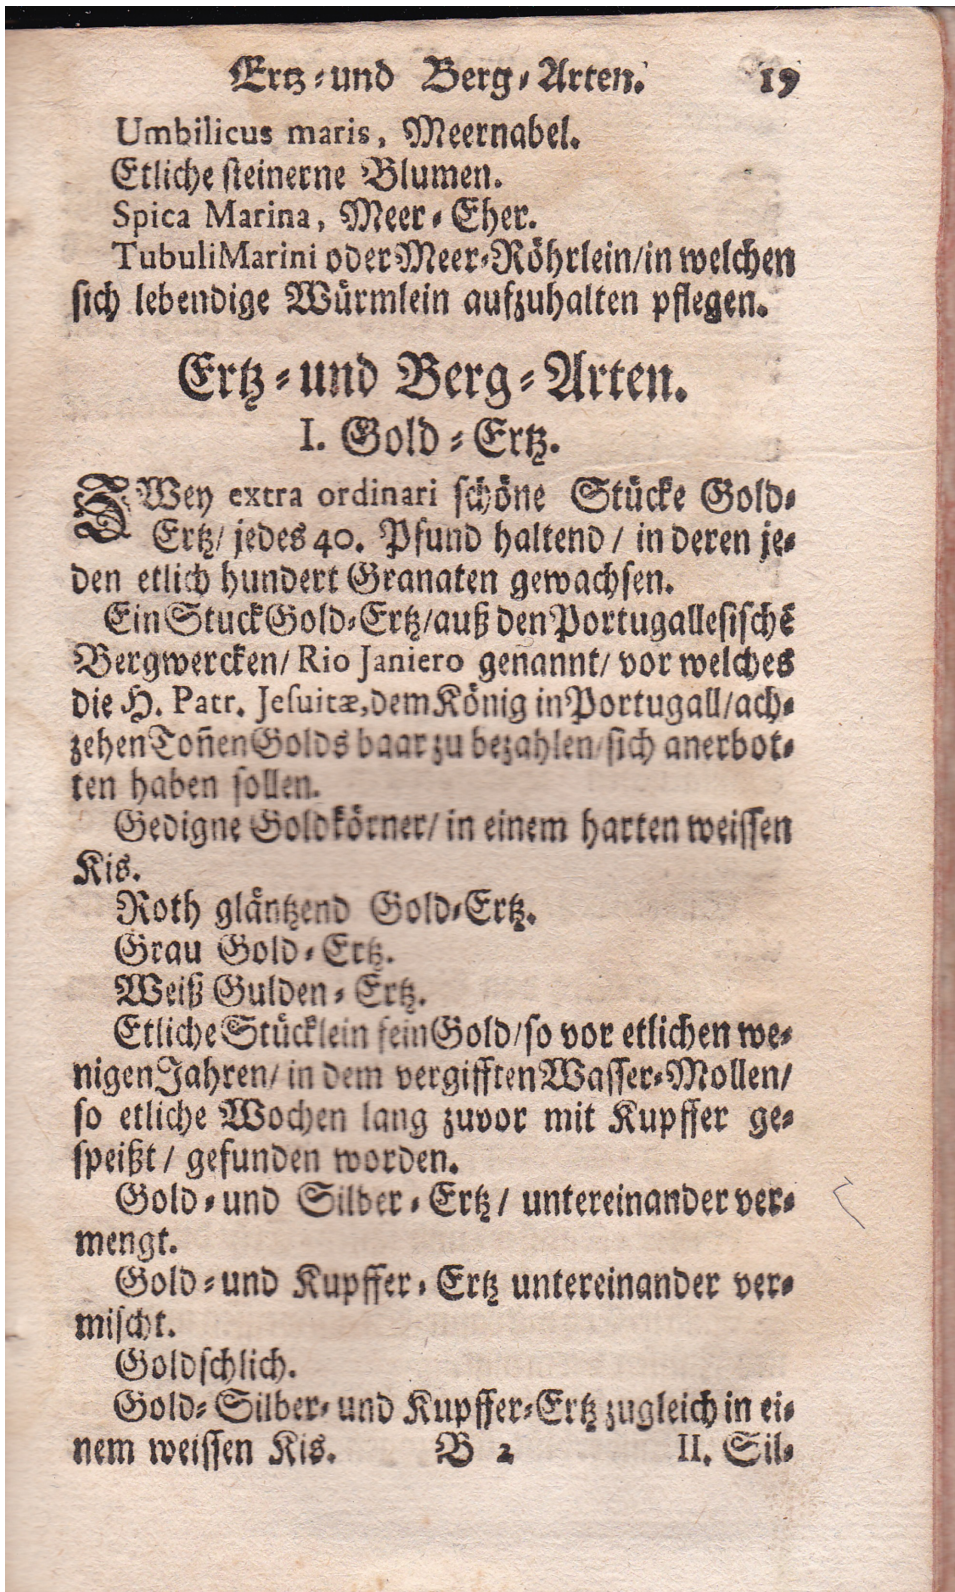 Ertz-und Berg-Arten. 19
Umbilicus maris, Meernabel.
Etliche steinerne Blumen.
Spica Marina, Meer-Eher.
Tubuli Marini oder Meer-Röhrlein/in welchen
sich lebendige Würmlein aufzuhalten pflegen.
Ertz-und Berg-Arten.
I. Gold-Ertz.
ZWey extra ordinari schöne Stücke Gold-
Ertz/ jedes 40. Pfund haltend/ in deren je-
den etlich hundert Granaten gewachsen.
Ein Stuck Gold-Ertz/auß den Portugallesischē
Bergwercken/ Rio Janiero genannt/ vor welches
die H. Patr. Jesuitæ, dem König in Portugall/ach-
zehen Toñen Golds baar zu bezahlen/sich anerbot-
ten haben sollen.
Gedigne Goldkörner/ in einem harten weissen
Kis.
Roth gläntzend Gold-Ertz.
Grau Gold-Ertz.
Weiß Gulden-Ertz.
Etliche Stücklein fein Gold/so vor etlichen we-
nigen Jahren/ in dem vergifften Wasser-Mollen/
so etliche Wochen lang zuvor mit Kupffer ge-
speißt/ gefunden worden.
Gold-und Silber-Ertz/ untereinander ver-
mengt.
Gold-und Kupffer-Ertz untereinander ver-
mischt.
Goldschlich.
Gold-Silber-und Kupffer-Ertz zugleich in ei-
nem weissen Kis. B 2 II. Sil-